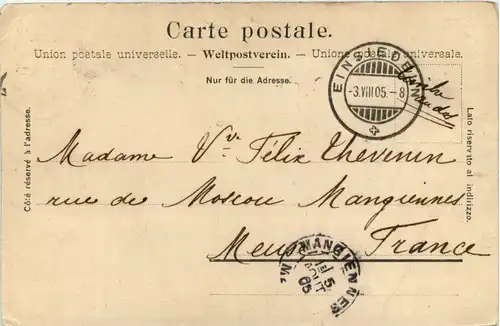 Carte postale.
Union postale universelle. – Weltpostverein. – Unione postale universale.
Nur für die Adresse.
EINSIEDELN
-3.VIII 05.-8
Côté réservé à l'adresse.
Lato riservato al indirizzo.
Madame Vve Félix Thevenin
rue de Moscou Mangiennes
Meuse France
MANGIENNES
5
AOUT
05